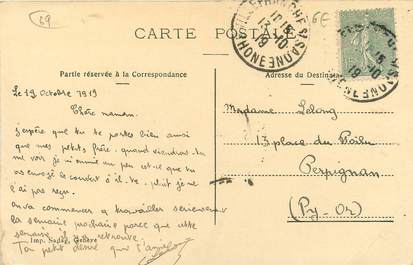 69
6E
CARTE POSTALE
VILLEFRANCHE S/SAONE
RHONE
13-10
19
Partie réservée à la Correspondance
Adresse du Destinata
Le 19 Octobre 1919
Chère maman.
j'espère que tu te portes bien ainsi
que mes petits frère. quand viendras-tu
me voir je m'ennuie un peu est-ce que tu
as envoyé le couvert s'il-te-plait je ne
l'ai pas reçu.
on va commencer a travailler sérieusement
la semaine prochaine parce que cette
semaine il y a retraite.
Ton petit désiré qui t'
Imp. Genève
Madame Lelong
13 place du Puits
Perpignan
(Py-Or)